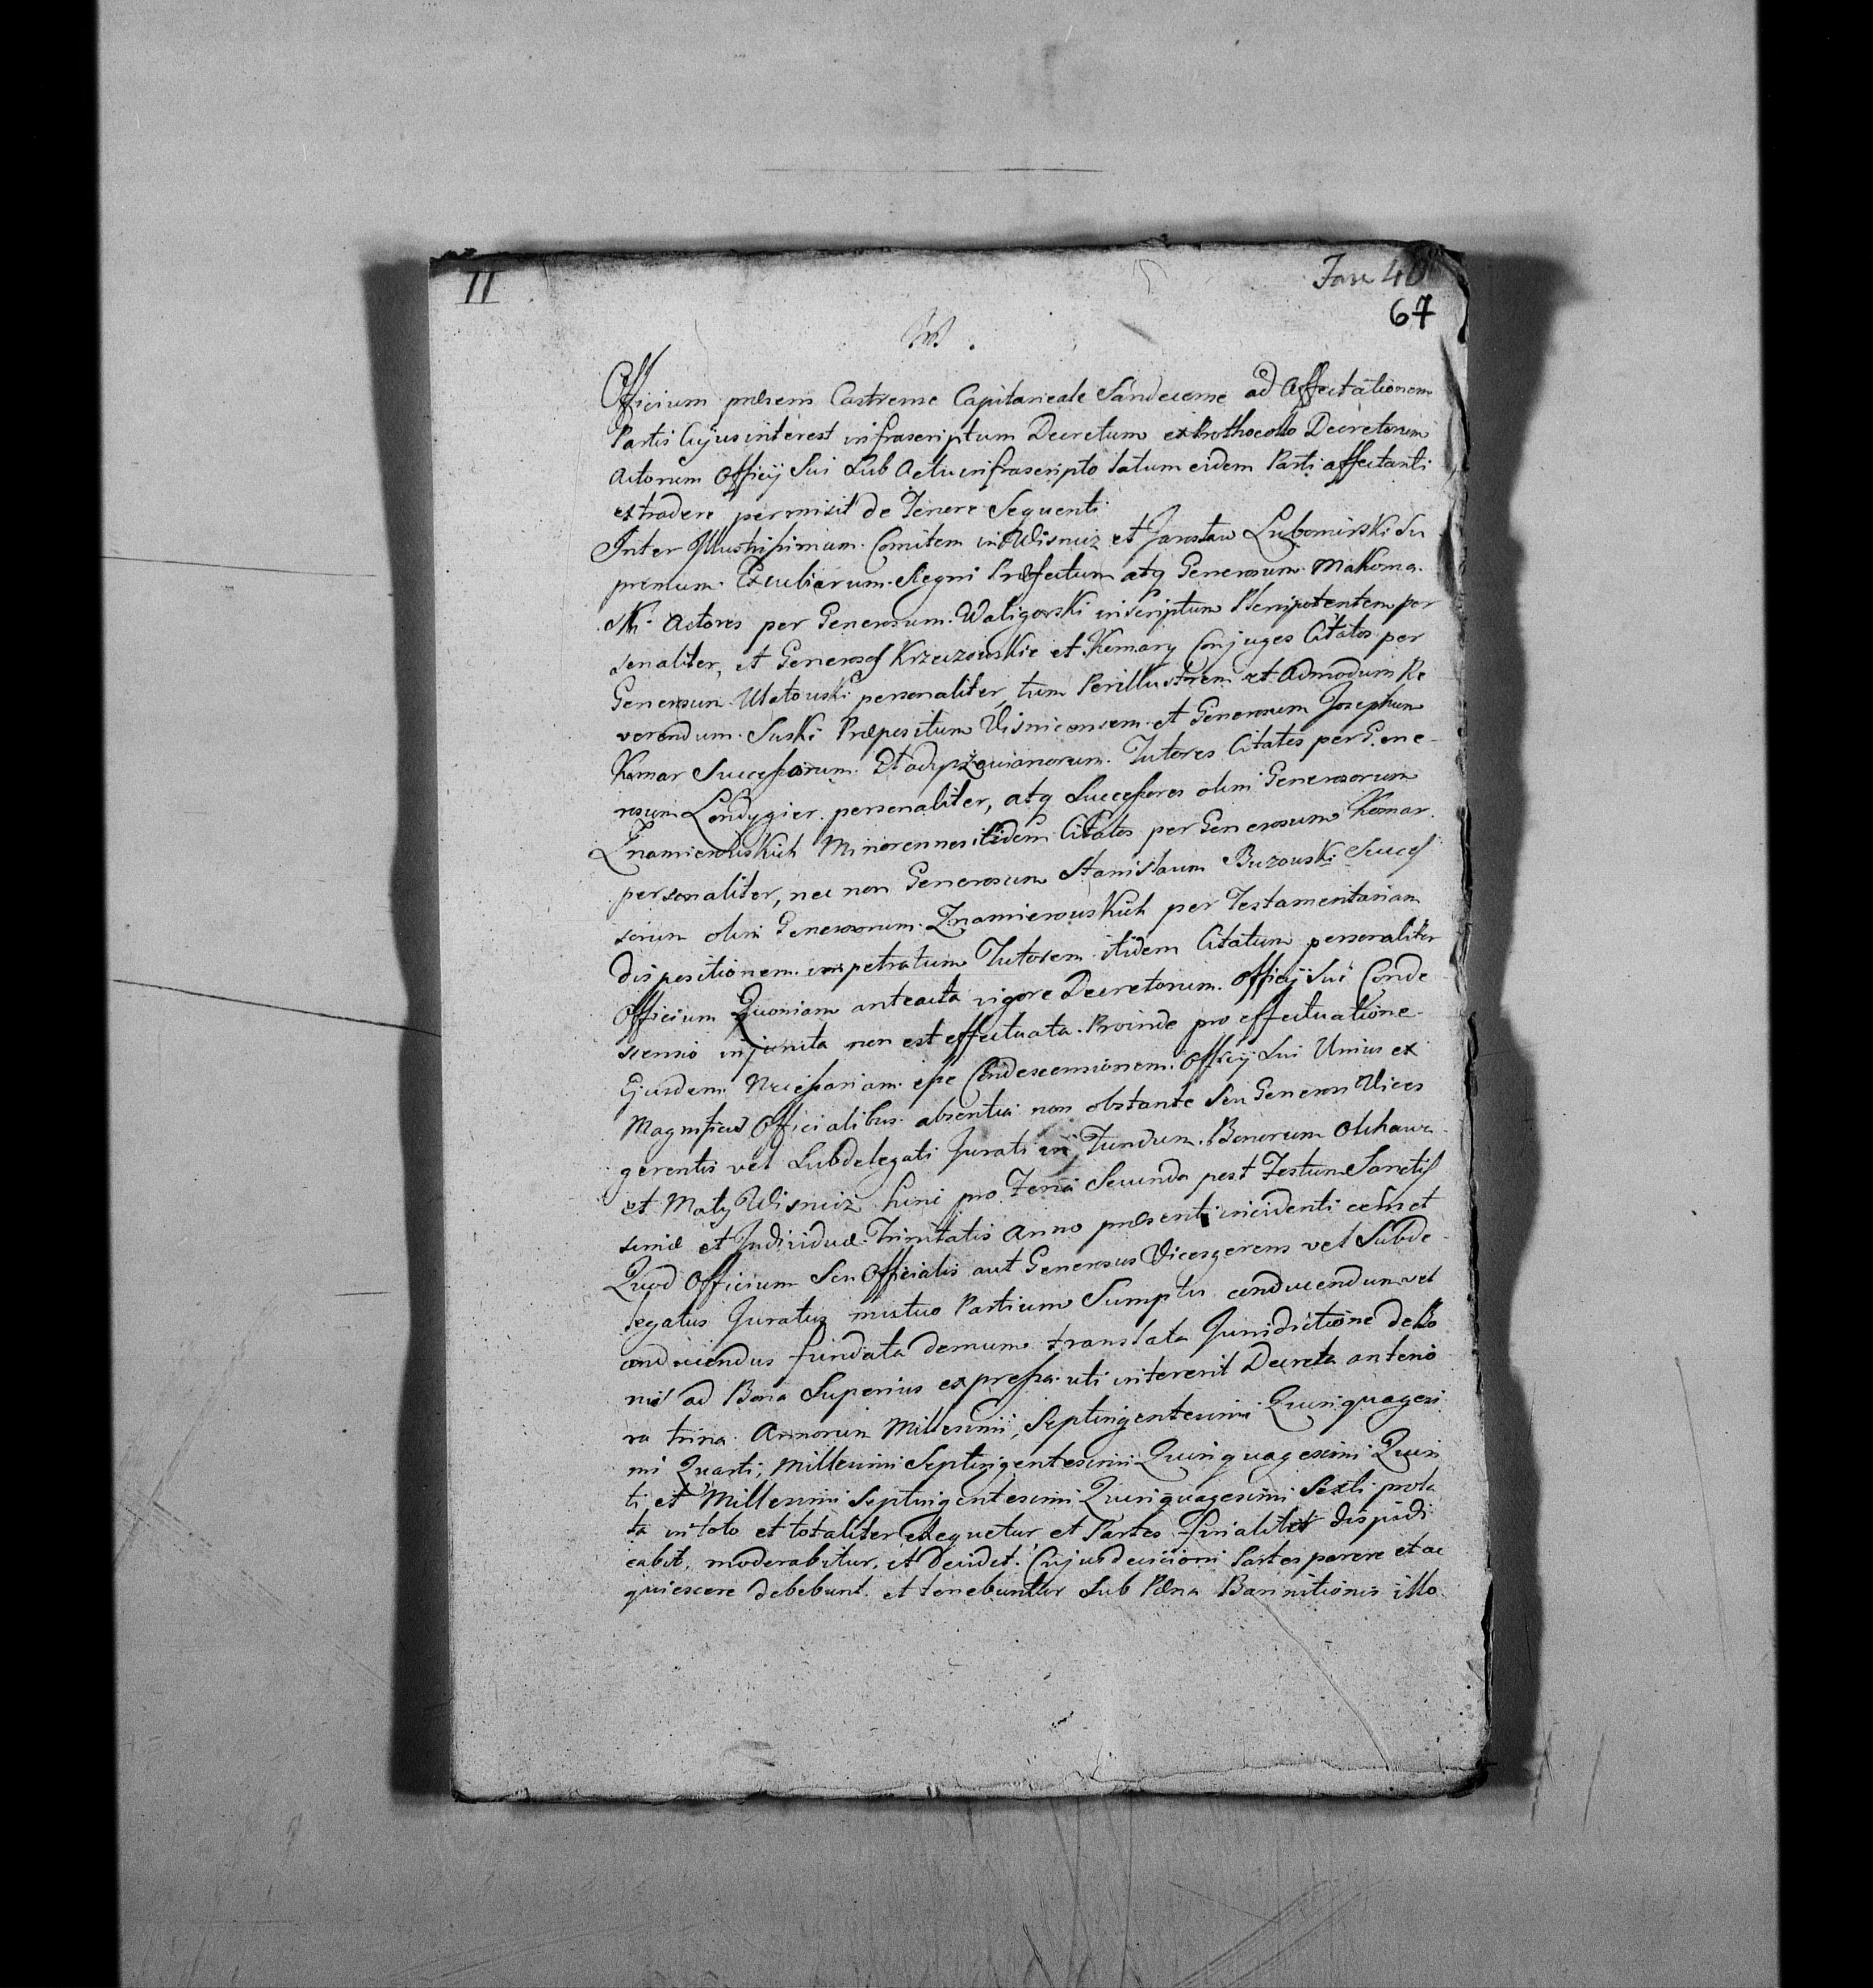 11
67
Officium præsens Castrense Capitaneale Sandecense ad affectationem
Partis Cujus interest infrascriptum Decretum ex Prothocollo Decretorum
Actorum Officij Sui Sub Actu infrascripto latum eidem Parti affectanti
extradere permisit de Tenore Sequenti
Inter Illustrissimum Comitem in Wisnicz et Jarosław Lubomirski Su
premum Excubiarum Regni Præfectum atq Generosum Makoma
ski Actores per Generosum Waligorski inscriptum Plenipotentem per
sonaliter, et Generos Krzeczowskie et Komary Conjuges Citatos per
Generosum Ulatouski personaliter, tum Perillustrem et Admodum Re
verendum Suski Præpositum Visnicensem et Generosum Josephum
Komar Successorum Tutores Citatos per Gene
rosum Londygier personaliter, atq Successores olim Generosorum
Znamierouskich Minorennes itidem Citatos per Generosum Komar
personaliter, nec non Generosum Stanislaum Buzouski Succes
sorum olim Generosorum Znamierouskich per Testamentariam
dispositionem impetratum Tutorem itidem Citatum personaliter
Officium Quoniam anteacta vigore Decretorum Officij Sui Conde
scensio injuncta non est effectuata. Proinde pro effectuatione
Ejusdem Necessariam esse Condescensionem Officij Sui Unius ex
Magnificis Officialibus absentia non obstante Seu Generosi Vices
gerentis vel Subdelegati Jurati in Fundum Bonorum Olchawa
et Mały Wisnicz hinc pro Feria Secunda post Festum Sanctis
simæ et Individuæ Trinitatis Anno præsenti incidenti
Quod Officium Seu Officialis aut Generosus Vicesgerens vel Subde
legatus Juratus mutuo Partium Sumptu conducendum vel
conducendus fundata demum translata Jurisdictione de Bo
nis ad Bona Superius expressa uti intererit Decreta anterio
ra trina Annorum Millesimi, Septingentesimi Quinquagesi
mi Quarti, Millesimi Septingentesimi Quinquagesimi Quin
ti et Millesimi Septingentesimi Quinquagesimi Sexti prola
ta in toto et totaliter exequetur et Partes finaliter dispudi
cabit, moderabitur, et decidet. Cujus decisioni Partes parere et ac
quiescere debebunt et tenebuntur Sub Pæna Bannitionis illo